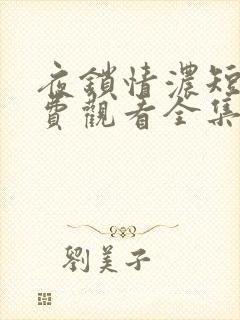 夜鎖情濃短
費觀看全集
劉美子